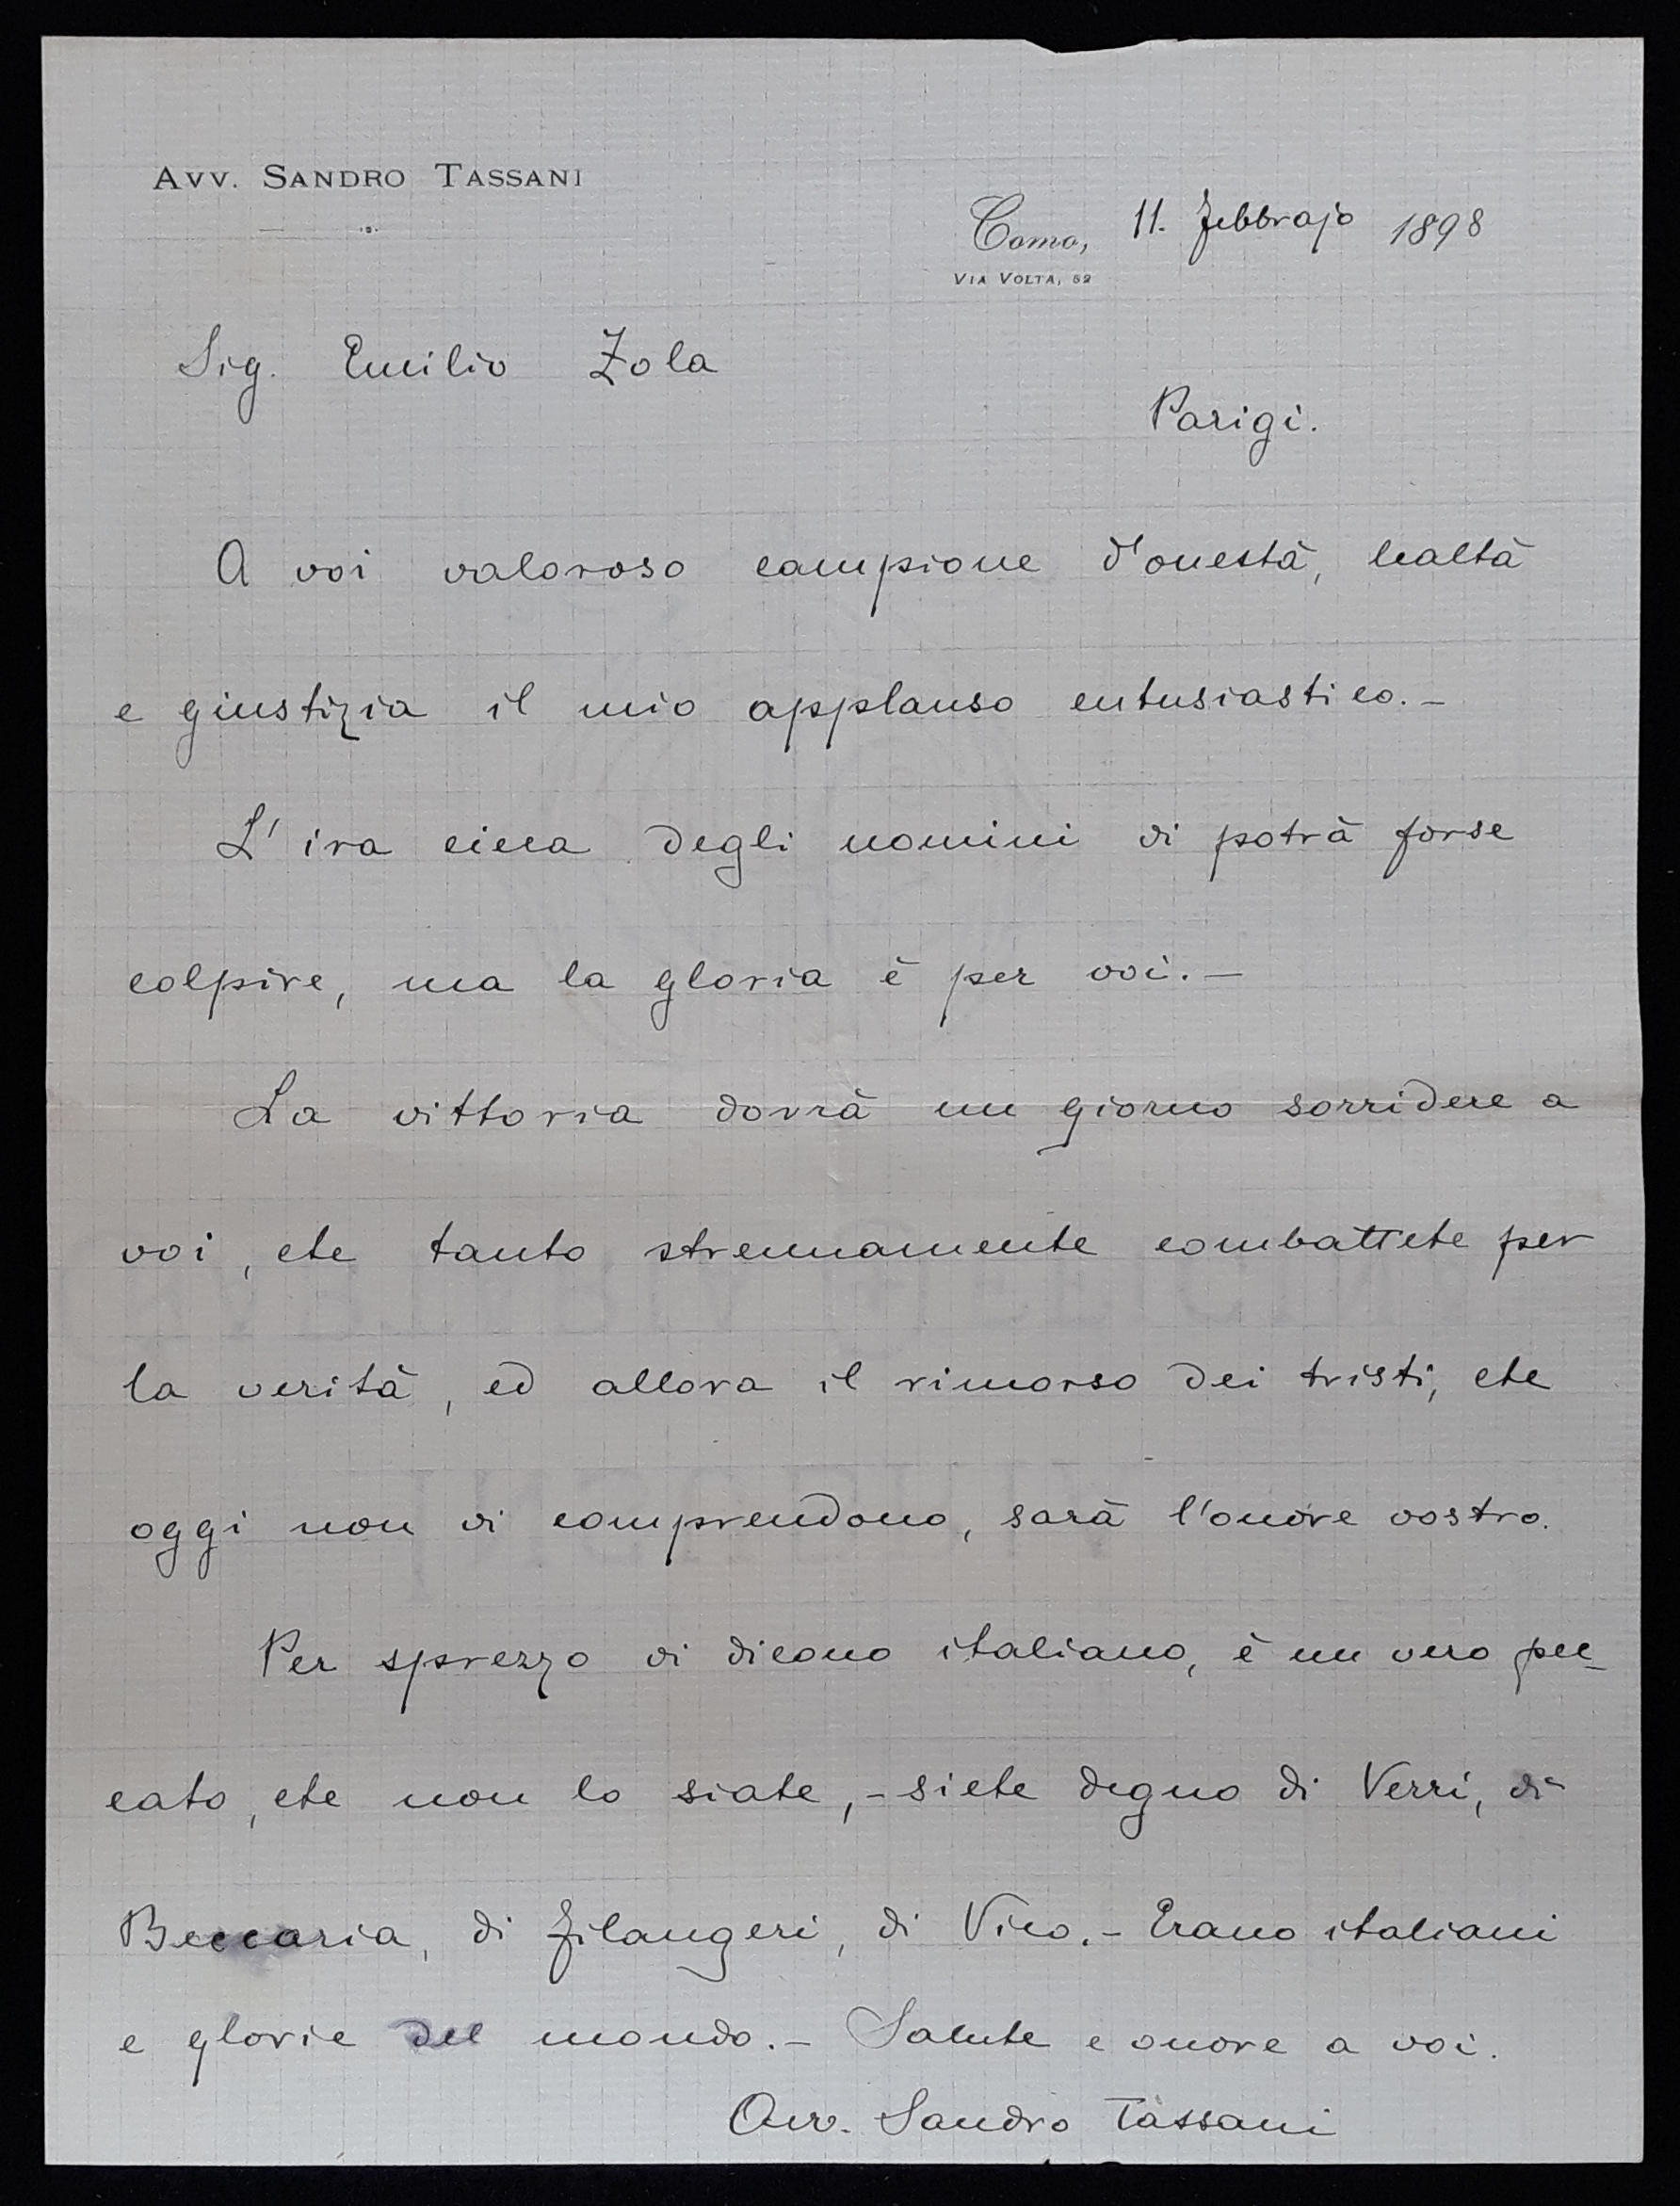 Avv. Sandro Tassani
Como, 11. febbrajo 1898
Via Volta, 52
Sig. Emilio Zola
Parigi.
A voi valoroso campione d'onestà, lealtà
e giustizia il mio applauso entusiastico.-
L'ira cieca degli uomini vi potrà forse
colpire, ma la gloria è per voi.-
La vittoria dovrà un giorno sorridere a
voi, che tanto strenuamente combattete per
la verità, ed allora il rimorso dei tristi, che
oggi non vi comprendono, sarà l'onore vostro.
Per sprezzo vi dicono italiano, è un vero pec-
cato, che non lo siate,- siete degno di Verri, di
Beccaria, di Filangeri, di Vico.- Erano italiani
e glorie del mondo.- Salute e onore a voi.
Avv. Sandro Tassani